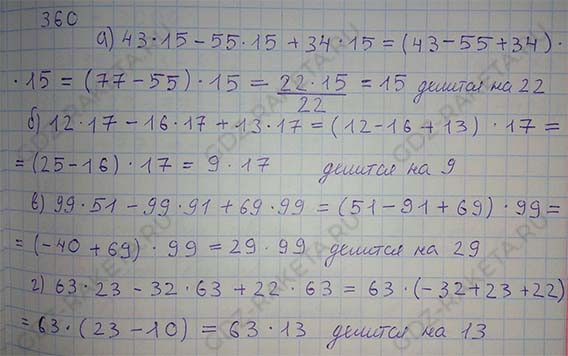 360
а) 43·15-55·15+34·15=(43-55+34)·
·15=(77-55)·15=22·15/22=15 делится на 22
б) 12·17-16·17+13·17=(12-16+13)·17=
=(25-16)·17=9·17 делится на 9
в) 99·51-99·91+69·99=(51-91+69)·99=
=(-40+69)·99=29·99 делится на 29
г) 63·23-32·63+22·63=63·(-32+23+22)
=63·(23-10)=63·13 делится на 13
GDZ-RAKETA.RU